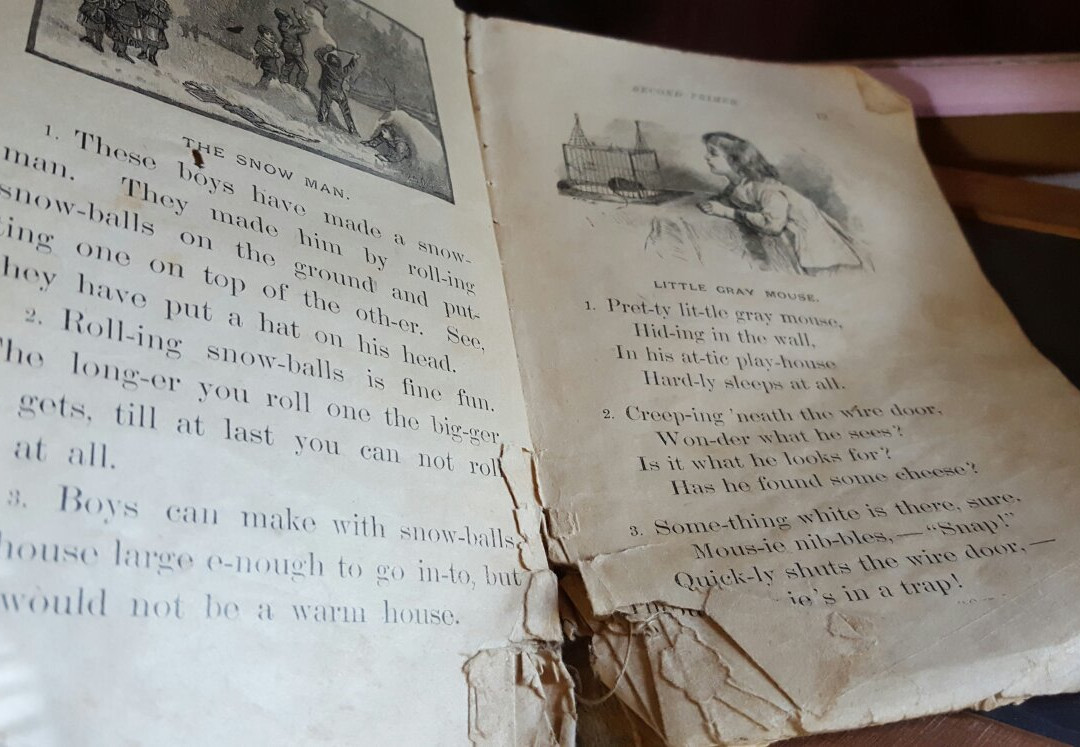 THE SNOW MAN.
1. These boys have made a snow-
man. They made him by roll-ing
snow-balls on the ground and put-
ting one on top of the oth-er. See,
hey have put a hat on his head.
2. Roll-ing snow-balls is fine fun.
The long-er you roll one the big-ger
gets, till at last you can not roll
at all.
3. Boys can make with snow-balls
house large e-nough to go in-to, but
would not be a warm house.
SECOND PRIMER
LITTLE GRAY MOUSE.
1. Pret-ty lit-tle gray mouse,
Hid-ing in the wall,
In his at-tic play-house
Hard-ly sleeps at all.
2. Creep-ing 'neath the wire door,
Won-der what he sees?
Is it what he looks for?
Has he found some cheese?
3. Some-thing white is there, sure,
Mous-ie nib-bles,—"Snap!"
Quick-ly shuts the wire door,—
ie's in a trap!